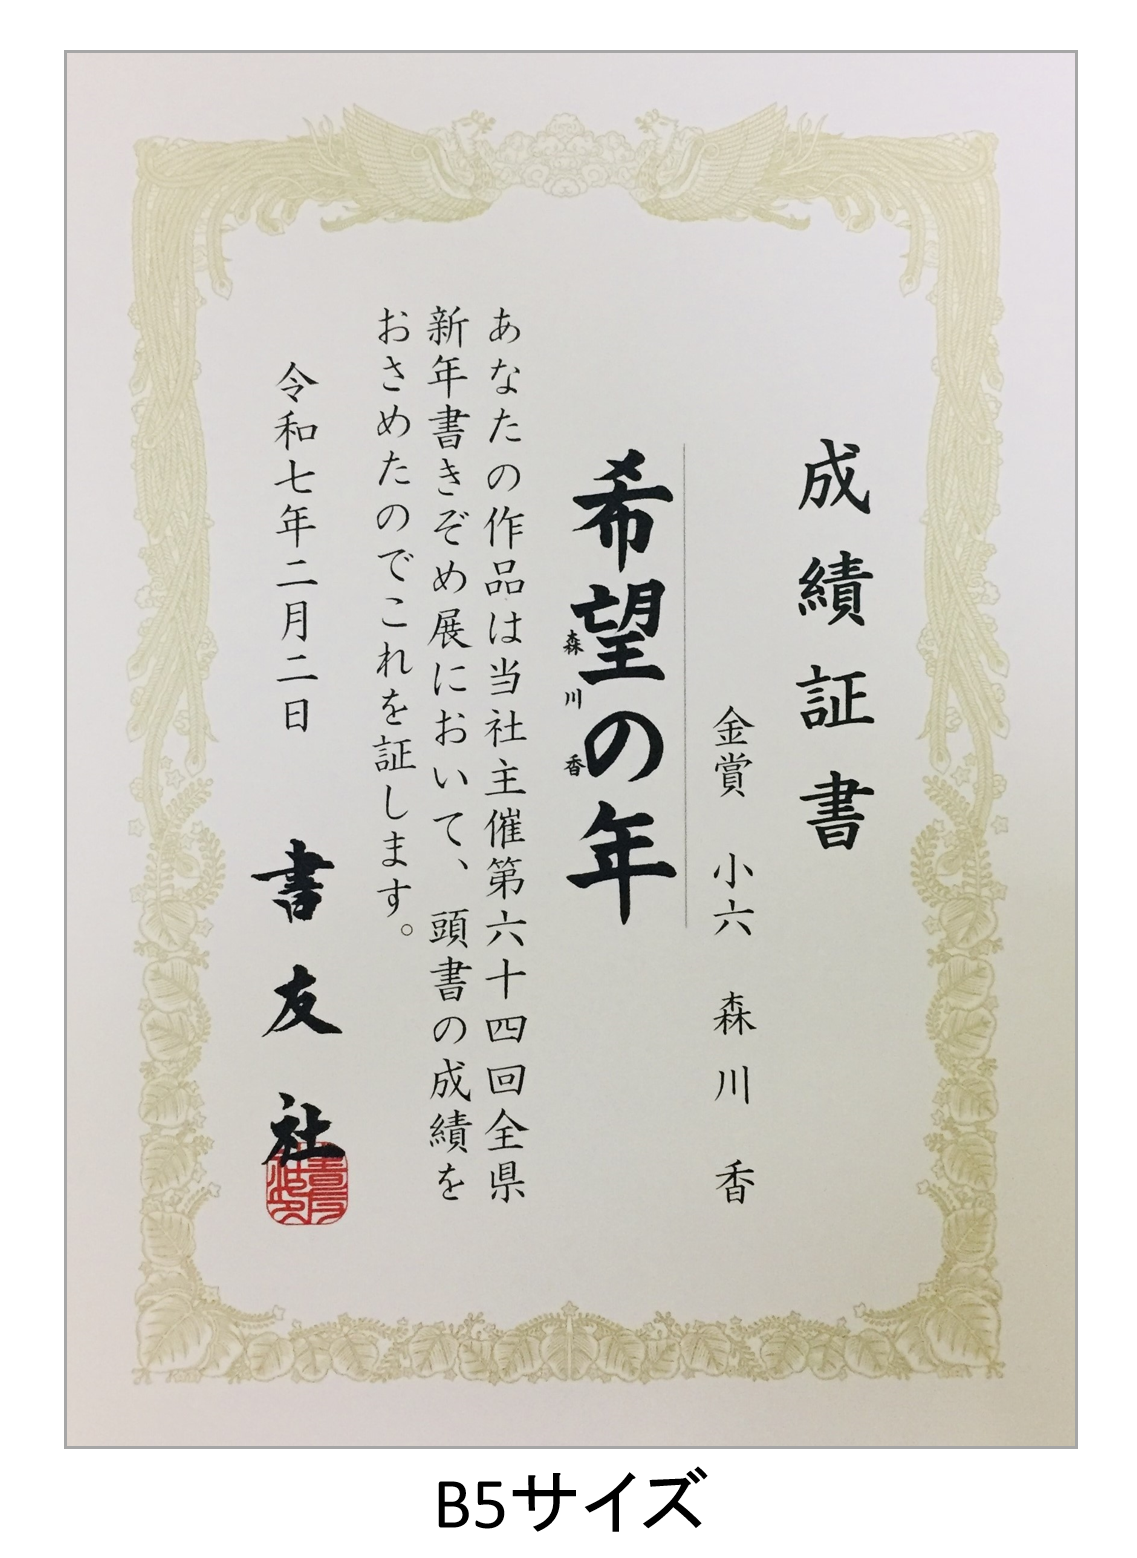 成績証書
金賞 小六 森川 香
希望の年
森川香
あなたの作品は当社主催第六十四回全県
新年書きぞめ展において、頭書の成績を
おさめたのでこれを証します。
令和七年二月二日
書友社
B5サイズ